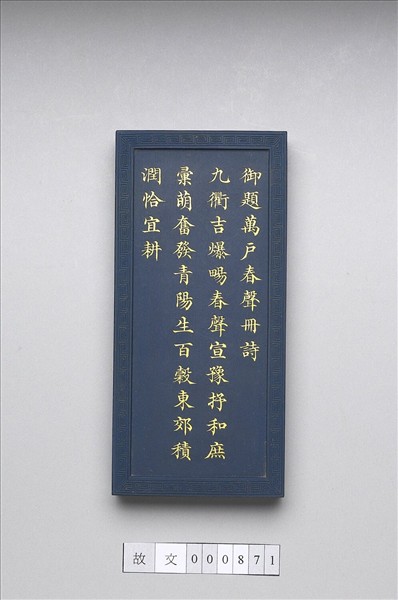 御題萬戶春聲冊詩
九衢吉爆暘春聲宣豫抒和庶
彙萌奮發青陽生百穀東郊積
潤恰宜耕
故文000871